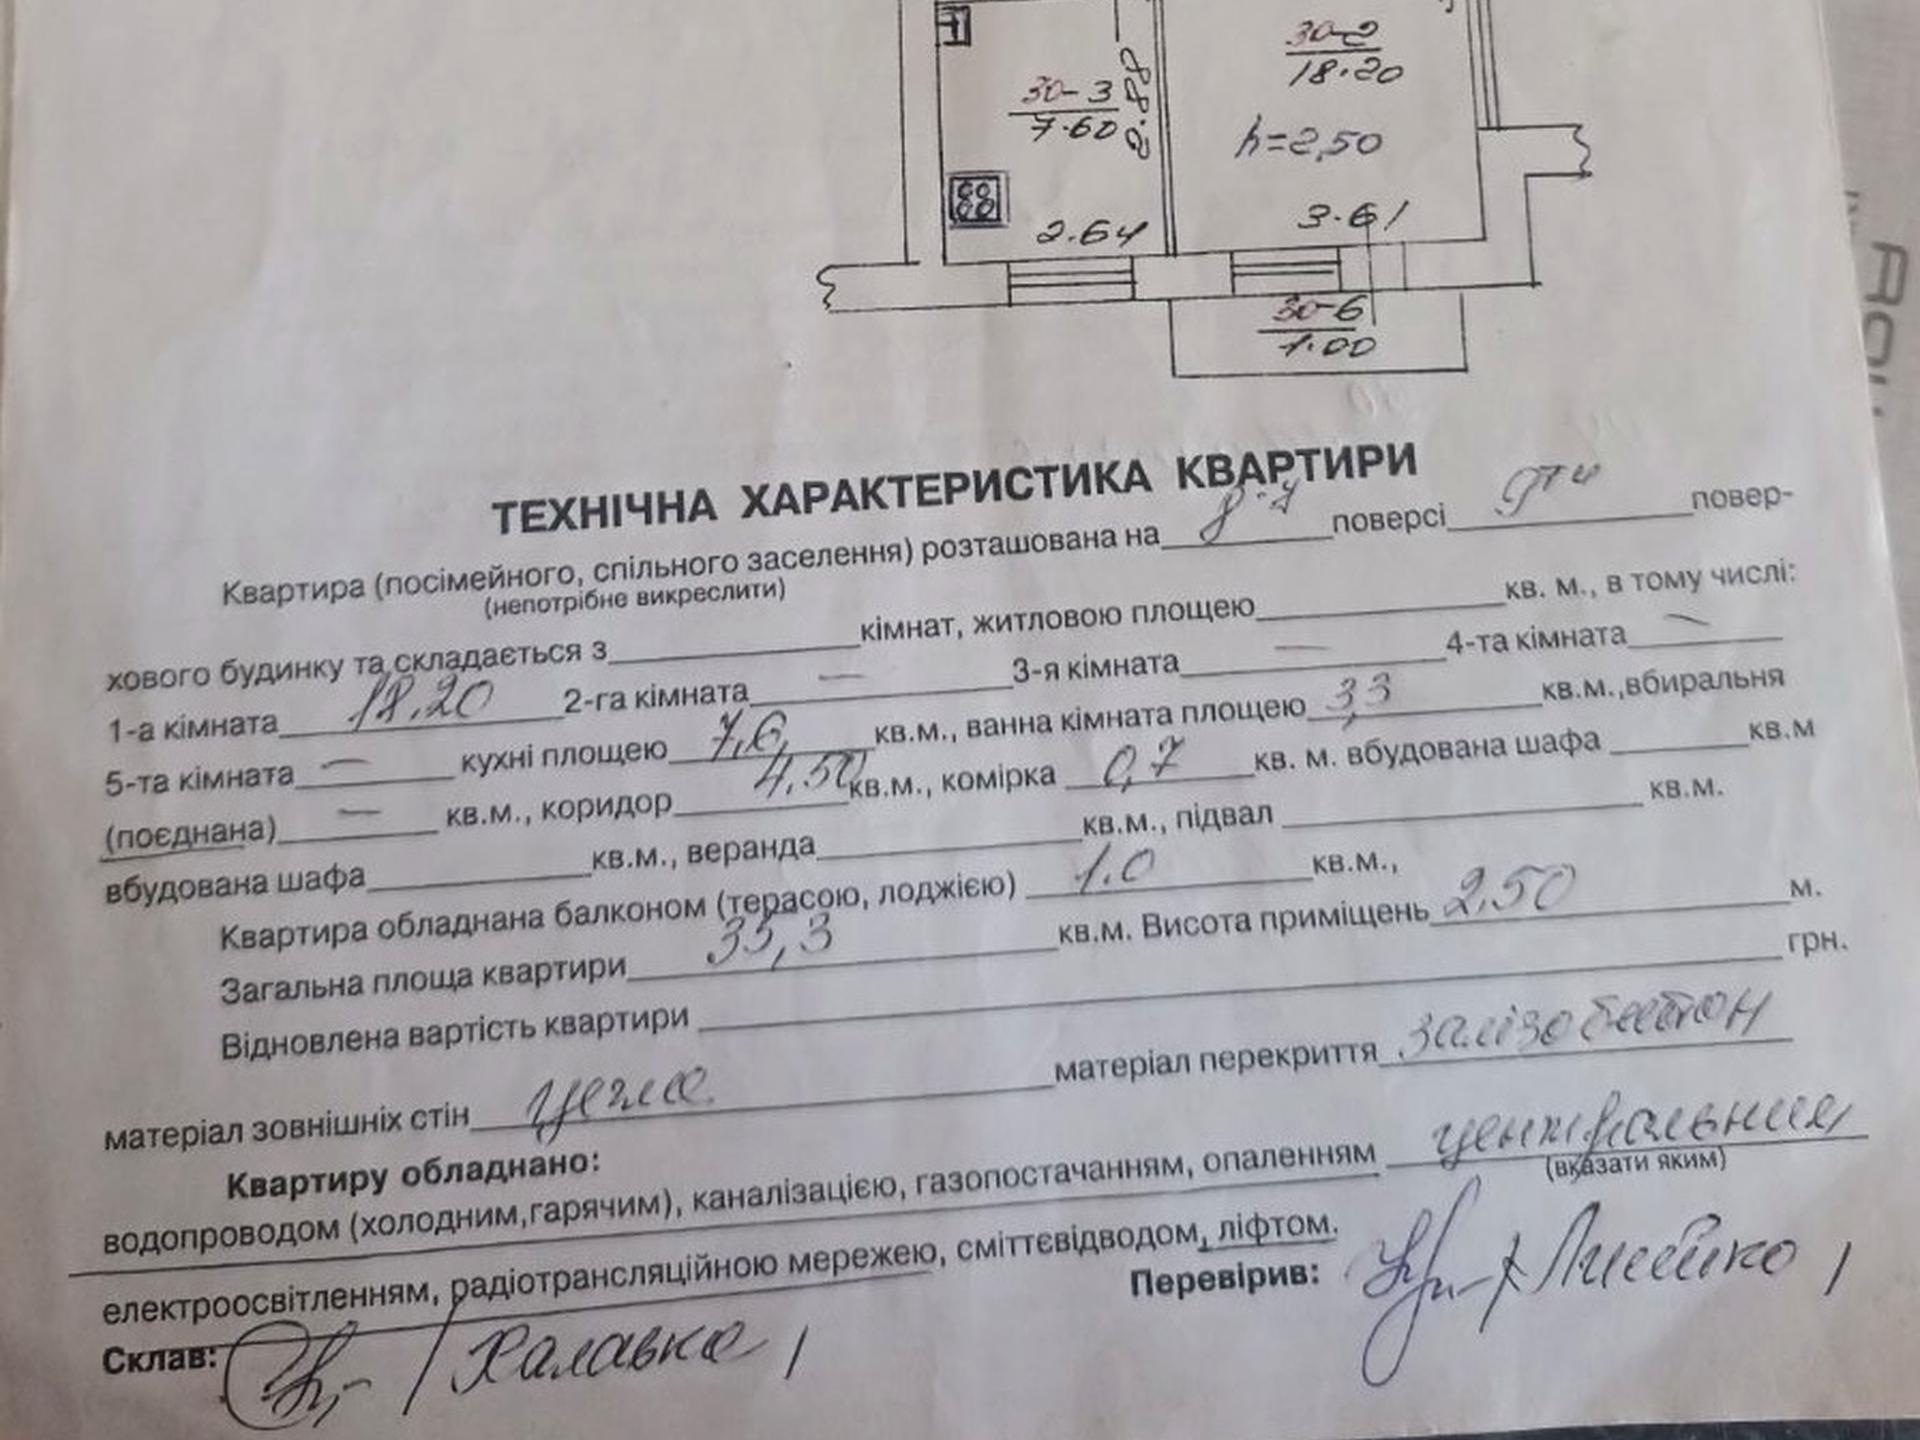 30-2
18.20
30-3
7.60
2.88
h=2,50
2.64
3.61
30-6
1.00
ТЕХНІЧНА ХАРАКТЕРИСТИКА КВАРТИРИ
Квартира (посімейного, спільного заселення) розташована на 8-й поверсі 9ти повер-
(непотрібне викреслити)
хового будинку та складається з кімнат, житловою площею кв. м., в тому числі:
1-а кімната 18,20 2-га кімната — 3-я кімната — 4-та кімната —
5-та кімната — кухні площею 7,6 кв.м., ванна кімната площею 3,3 кв.м.,вбиральня
(поєднана) — кв.м., коридор 4,50 кв.м., комірка 0,7 кв. м. вбудована шафа кв.м
вбудована шафа кв.м., веранда кв.м., підвал кв.м.
Квартира обладнана балконом (терасою, лоджією) 1.0 кв.м.,
Загальна площа квартири 35,3 кв.м. Висота приміщень 2,50 м.
Відновлена вартість квартири грн.
матеріал зовнішніх стін цегла матеріал перекриття залізобетон
Квартиру обладнано:
водопроводом (холодним,гарячим), каналізацією, газопостачанням, опаленням центральним
(вказати яким)
електроосвітленням, радіотрансляційною мережею, сміттєвідводом, ліфтом.
Перевірив:
Склав: / Халавка /